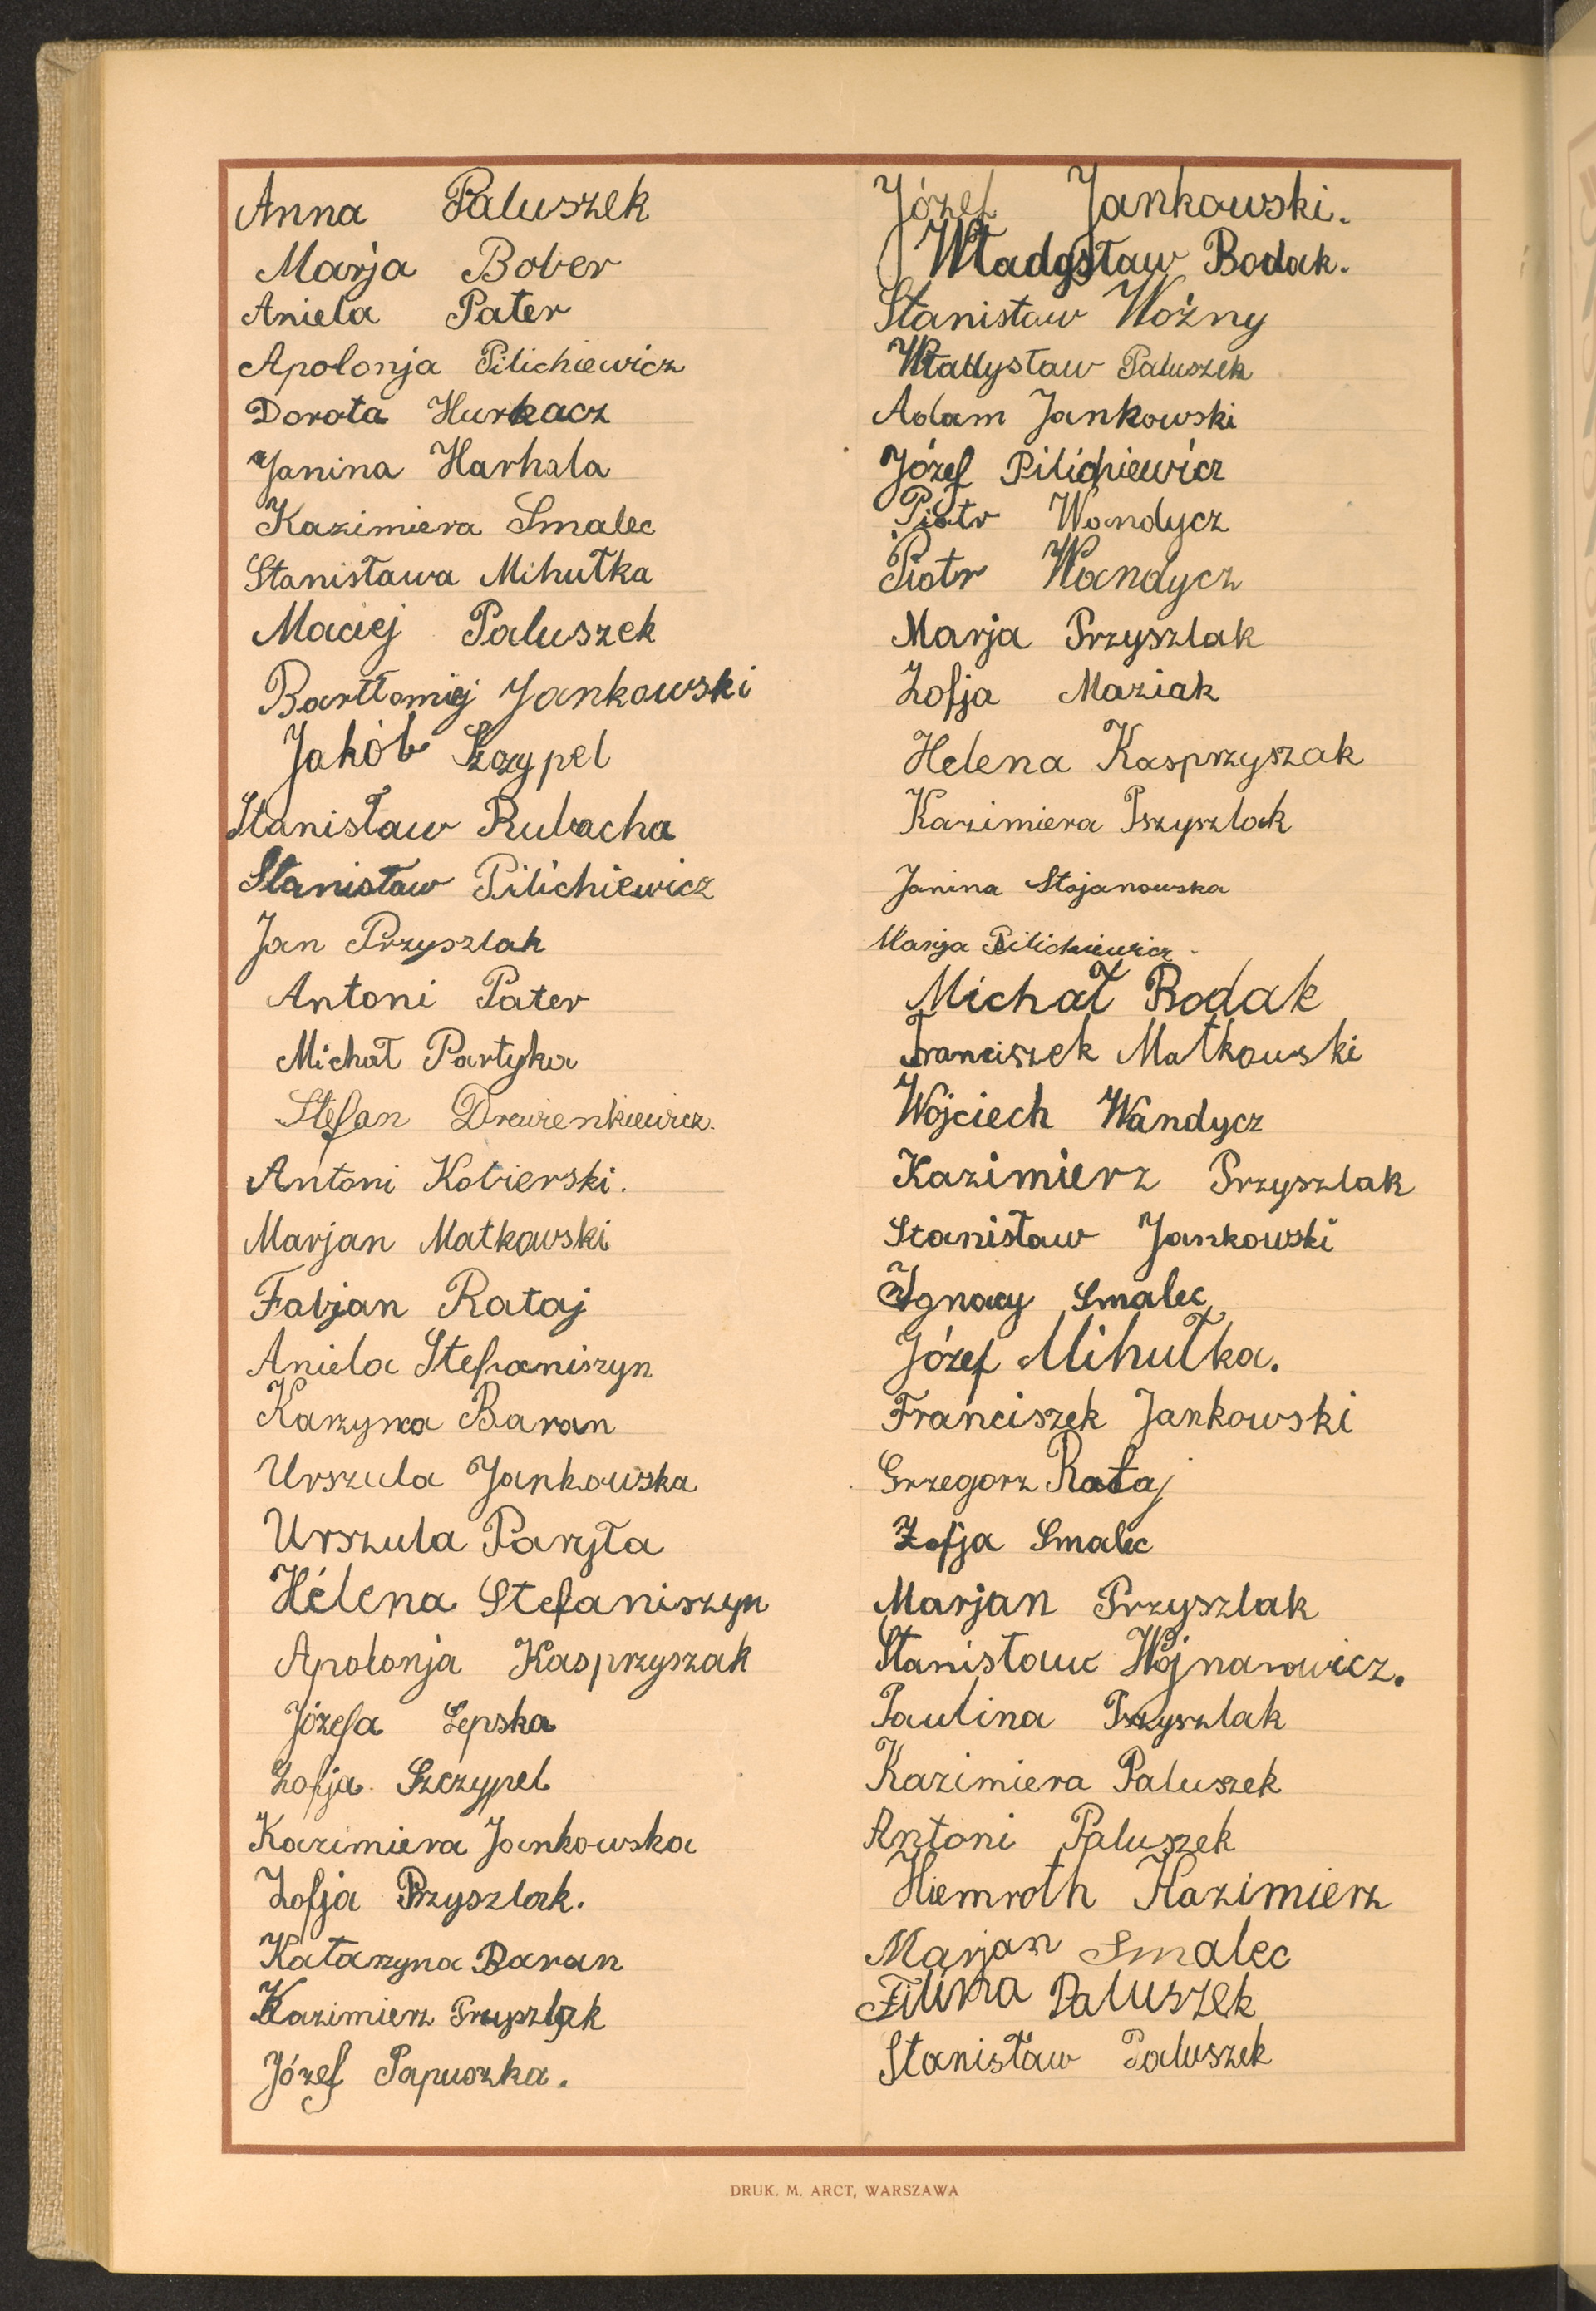 Anna Paluszek
Marja Bober
Aniela Pater
Apolonja Pilichiewicz
Dorota Hurkacz
Janina Harhala
Kazimiera Smalec
Stanisława Mihułka
Maciej Paluszek
Bartłomiej Jankowski
Jakób Szczypel
Stanisław Rubacha
Stanisław Pilichiewicz
Jan Przyszlak
Antoni Pater
Michał Partyka
Stefan
Antoni Kobierski.
Marjan Matkowski
Fabjan Rataj
Aniela Stefaniszyn
Baran
Urszula Jankowska
Urszula Paryła
Hélena Stefaniszyn
Apolonja Kasprzyszak
Józefa Lepska
Zofja Szczypel
Kazimiera Jankowska
Zofja Przyszlak.
Katarzyna Baran
Kazimierz Przyszlak
Józef Papuszka.
Józef Jankowski.
Władysław Bodak.
Stanisław Woźny
Władysław Paluszek
Adam Jankowski
Józef Pilichiewicz
Piotr Wandycz
Piotr Wandycz
Marja Przyszlak
Zofja Maziak
Helena Kasprzyszak
Kazimiera Pszyszlak
Janina Stojanowska
Marja Pilichiewicz
Michał Bodak
Franciszek Matkowski
Wojciech Wandycz
Kazimierz Przyszlak
Stanisław Jankowski
Ignacy Smalec
Józef Mihułka.
Franciszek Jankowski
Grzegorz Rataj
Zofja Smalec
Marjan Przyszlak
Stanisław Wojnarowicz.
Paulina Przyszlak
Kazimiera Paluszek
Antoni Paluszek
Hiemroth Kazimierz
Marjan Smalec
Paluszek
Stanisław Paluszek
DRUK. M. ARCT, WARSZAWA